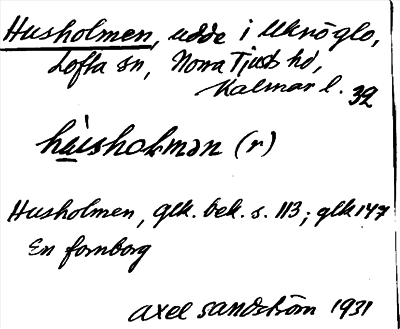 Husholmen, udde i Uknö glo,
Lofta sn, Norra Tjust hd,
Kalmar l. 32
hùsholmən (r)
Husholmen, glk. bek. s. 113; glk 147
En fornborg
Axel Sandström 1931